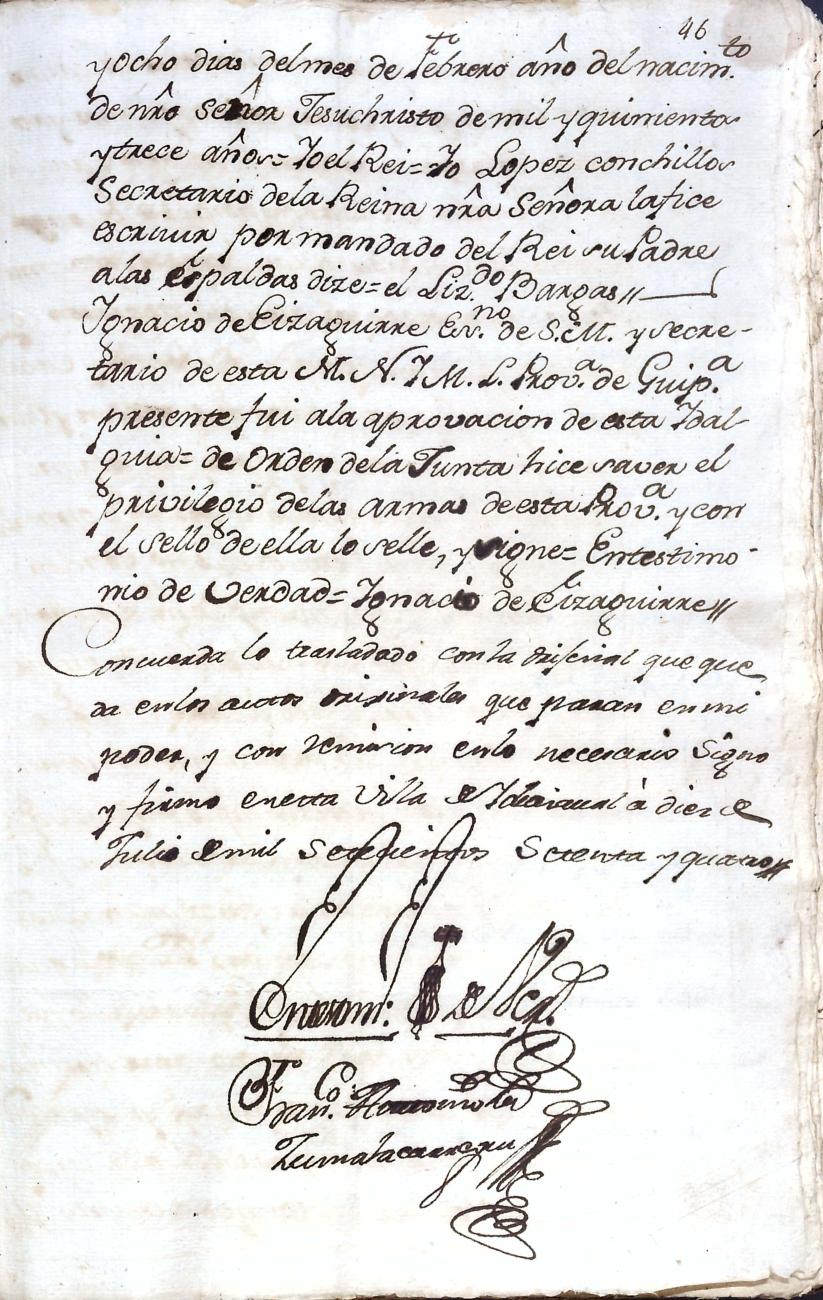 46
y ocho dias del mes de Febrero año del nacim.to
de nr̃o Señor Jesuchristo de mil y quinientos
y trece años = Yo el Rei = Yo Lopez conchillos
Secretario de la Reina nr̃a Señora la fice
escrivir por mandado del Rei su Padre
a las espaldas dize = el Liz.do Bargas //
Ygnacio de Eizaguirre Es.no de S. M. y secre-
tario de esta M. N. Y M. L. Prov.a de Guip.a
presente fui a la aprovacion de esta Ydal-
guia = de Orden de la Junta hice saver el
privilegio de las armas de esta Prov.a y con
el sello de ella lo selle, y signe = En testimo-
nio de verdad = Ygnacio de Eizaguirre //
Concuerda lo trasladado con la orijinal que que
da en los autos originales que paran en mi
poder, y con remision en lo necesario Signo
y firmo en esta Villa de Ydiazaval à diez de
Julio de mil Setecientos Setenta y quatro //
En testim.o de Ver.d
Fran.co Antonio de
Zumalacarregui